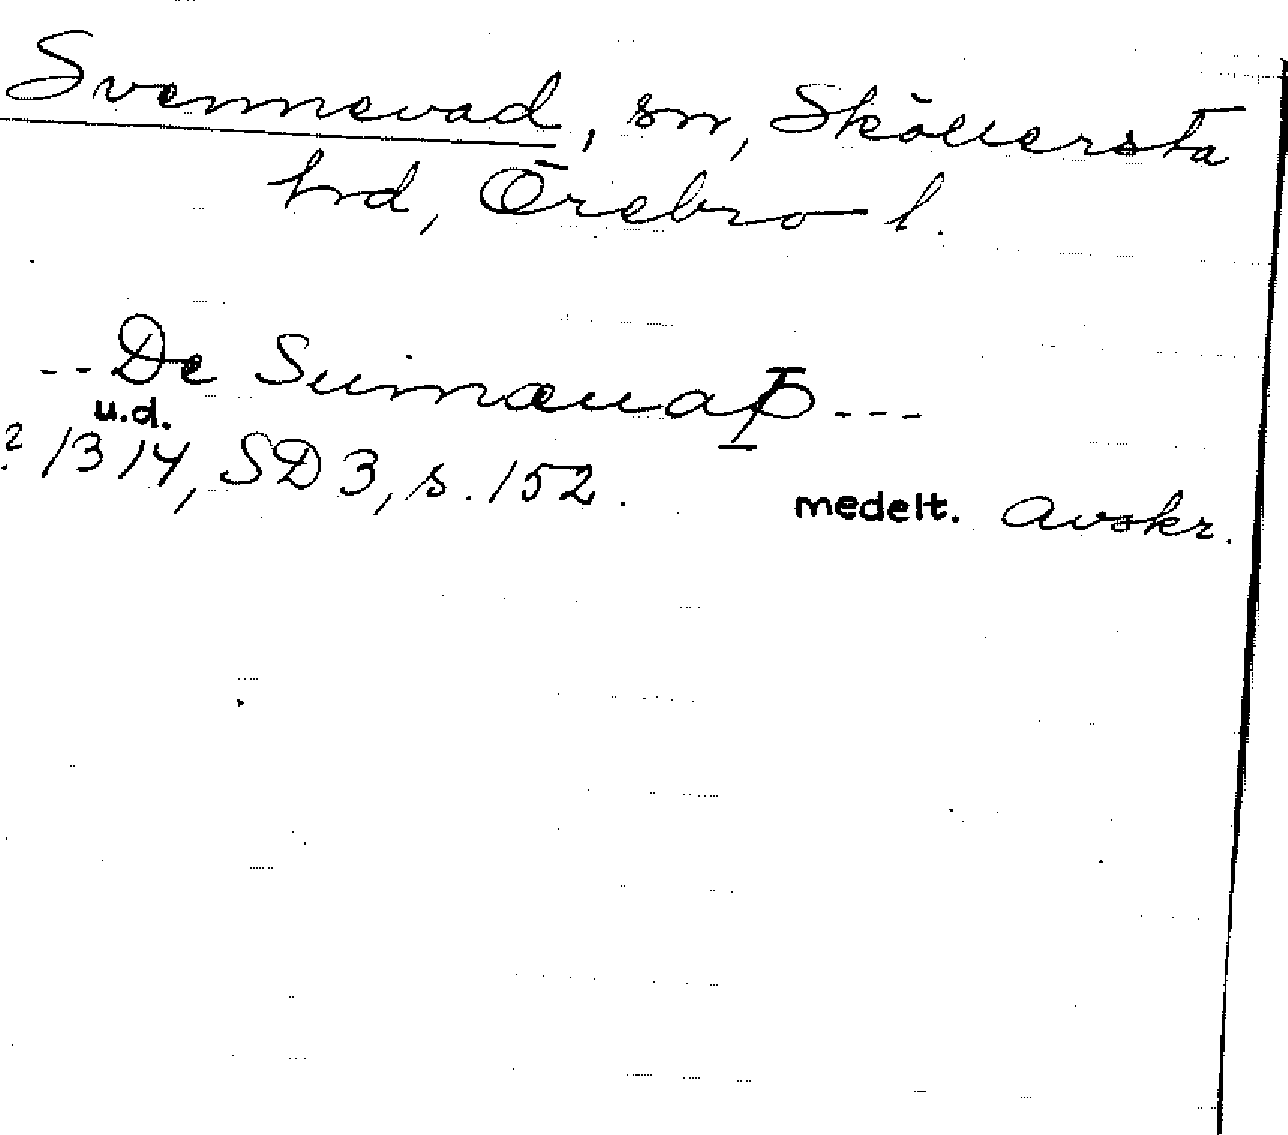 Svennevad, sn, Sköllersta
hd, Örebro l.
--De Suinæuaþ---
u.d.
? 1314, SD 3, s. 152. medelt. Avskr.